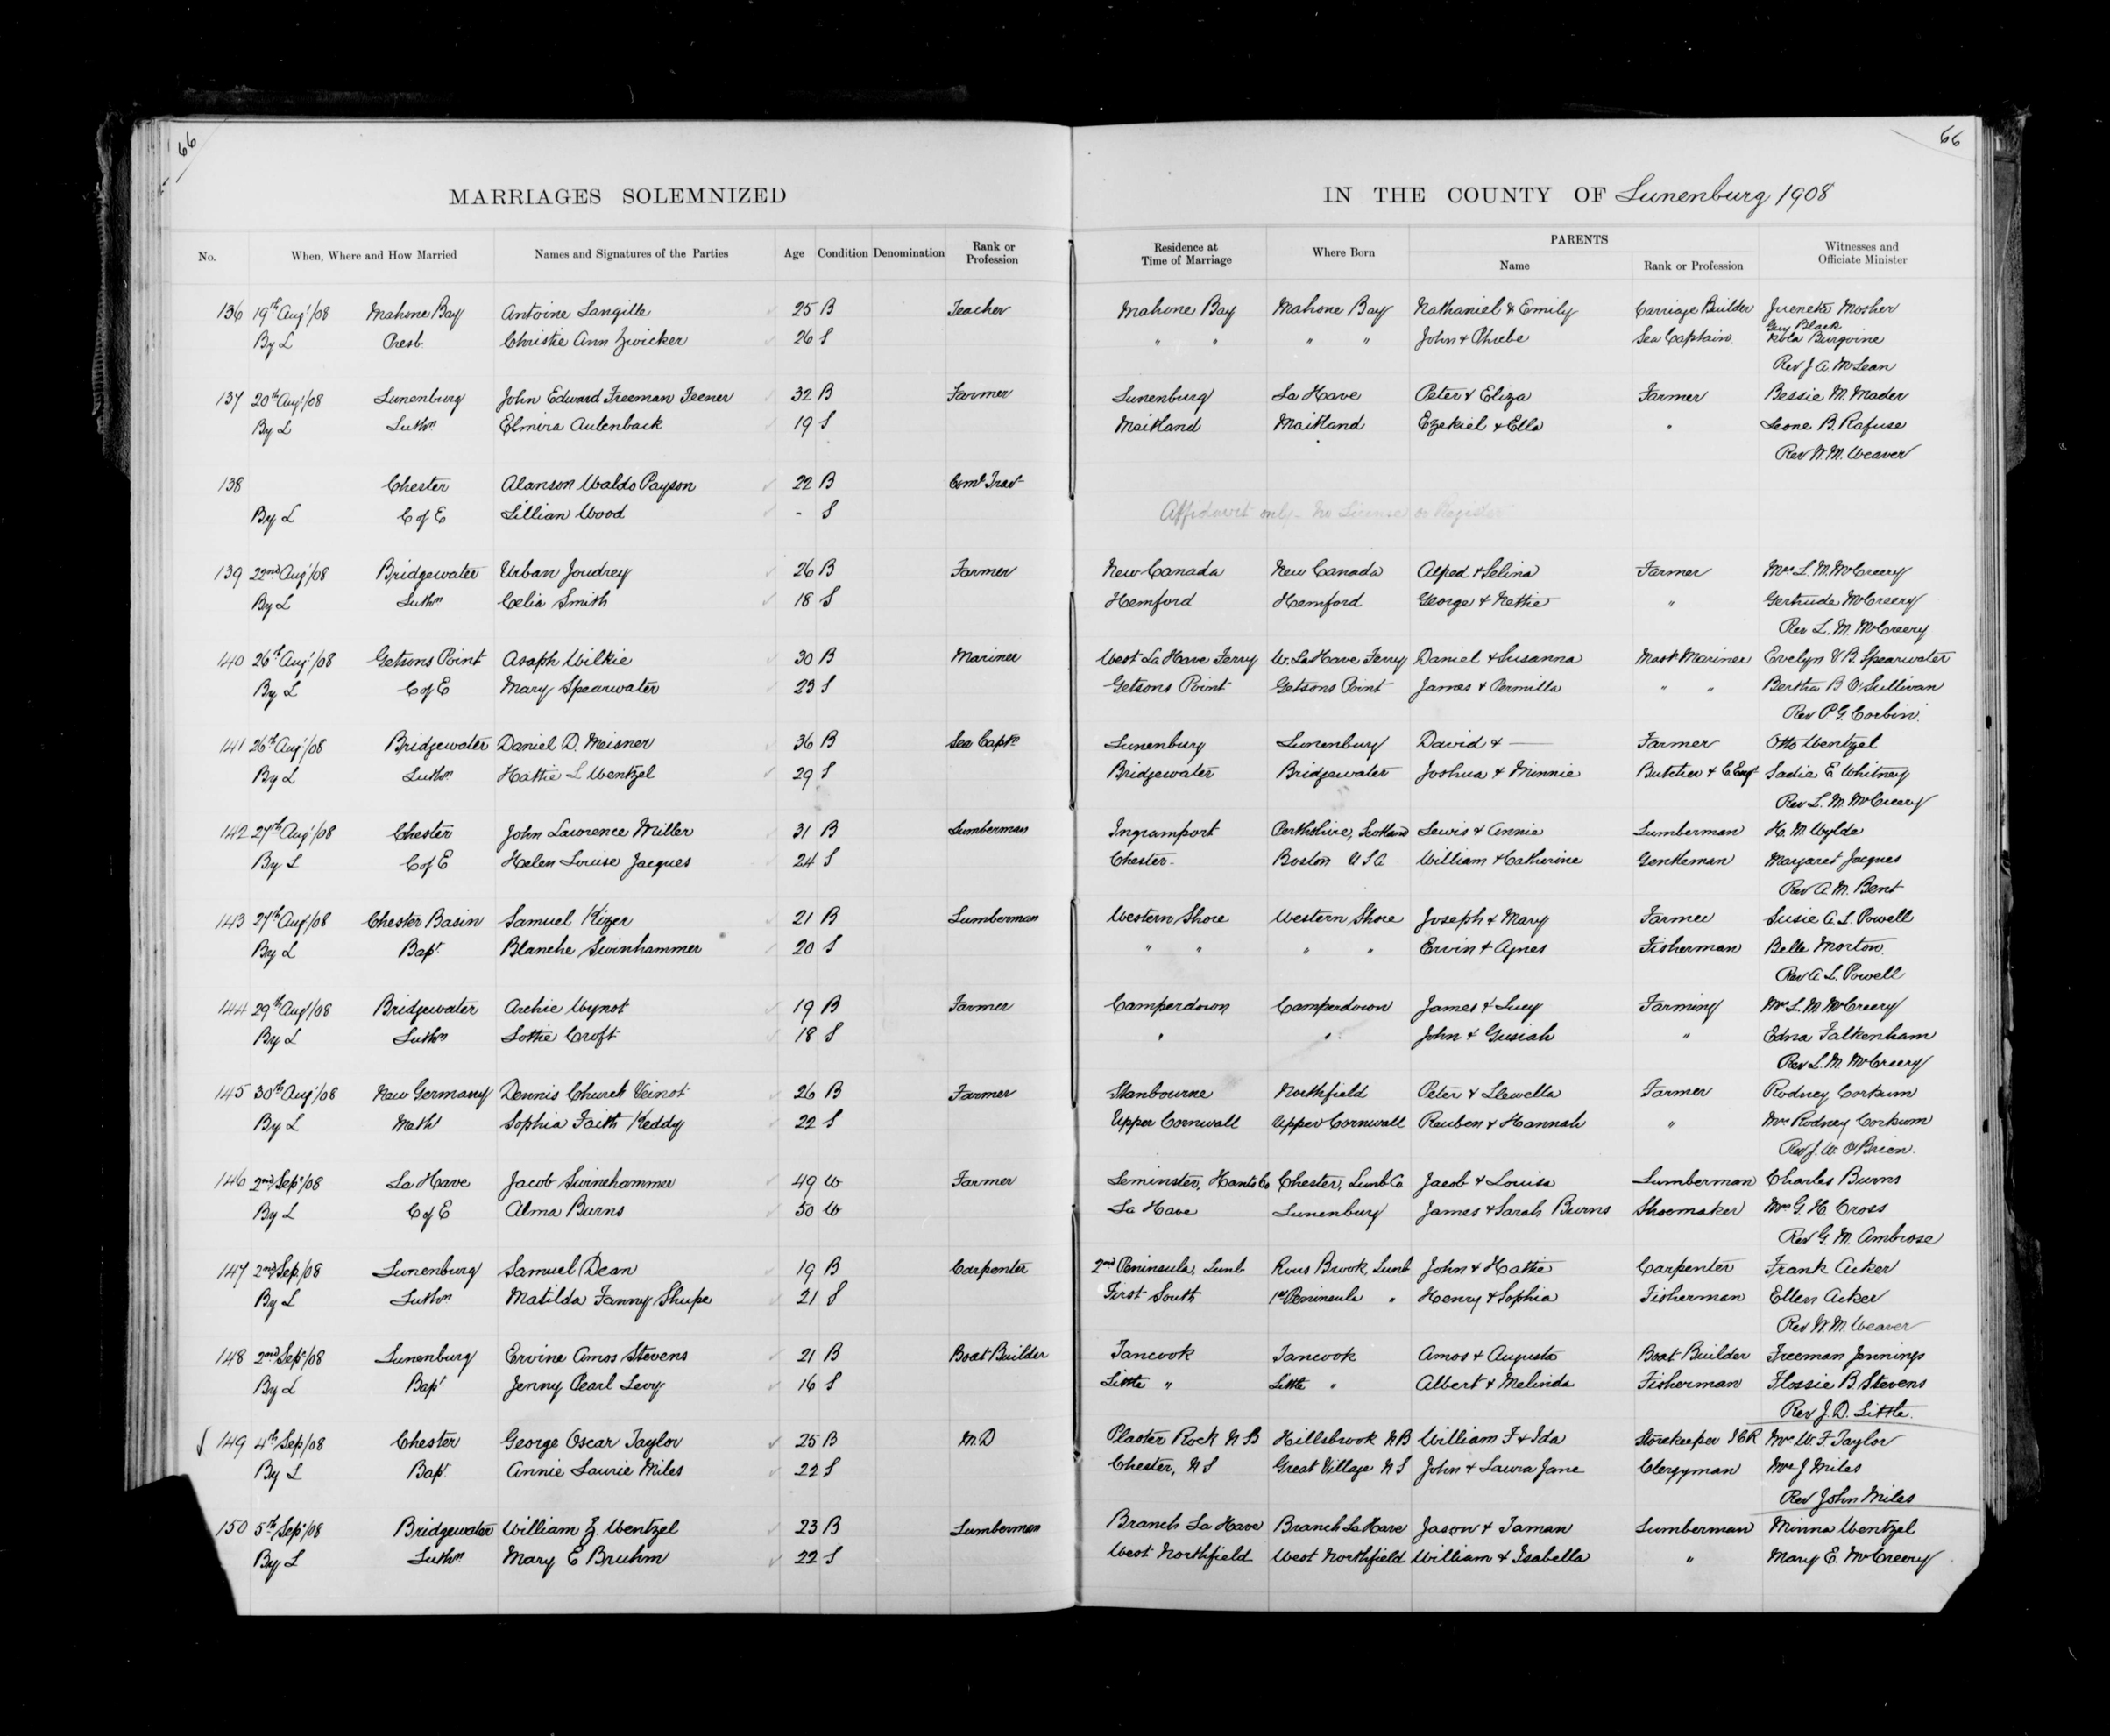 66
66
MARRIAGES SOLEMNIZED IN THE COUNTY OF Lunenburg 1908
No. When, Where and How Married Names and Signatures of the Parties Age Condition Denomination Rank or Profession Residence at Time of Marriage Where Born PARENTS Name Rank or Profession Witnesses and Officiate Minister
136 19th Aug't/08 Mahone Bay Antoine Langille 25 B Teacher Mahone Bay Mahone Bay Nathaniel & Emily Carriage Builder Juenete Mosher
Guy Black
By L Presb. Christie Ann Zwicker 26 S " " " " John & Phoebe Sea Captain Nola Burgoine
Rev J A McLean
137 20th Aug't/08 Lunenburg John Edward Freeman Feener 32 B Farmer Lunenburg La Have Peter & Eliza Farmer Bessie M. Mader
By L Luthn Elmira Aulenback 19 S Maitland Maitland Ezekiel & Ella " Leone B. Rafuse
Rev W. M. Weaver
138 Chester Alanson Waldo Payson 22 B Coml Trav
By L C of E Lillian Wood - S Affidavit only - No License or Register
139 22nd Aug't/08 Bridgewater Urban Joudrey 26 B Farmer New Canada New Canada Alfred & Selina Farmer Mrs L. M. McCreery
By L Luthn Celia Smith 18 S Hemford Hemford George & Nettie " Gertrude McCreery
Rev L. M. McCreery
140 26th Aug't/08 Getsons Point Asaph Wilkie 30 B Mariner West La Have Ferry W. La Have Ferry Daniel & Susanna Mast Mariner Evelyn V B. Spearwater
By L C of E Mary Spearwater 23 S Getsons Point Getsons Point James & Permilla " " Bertha B O'Sullivan
Rev P. G. Corbin.
141 26th Aug't/08 Bridgewater Daniel D. Meisner 36 B Sea Captn Lunenburg Lunenburg David & — Farmer Otto Wentzel
By L Luthn Hattie L Wentzel 29 S Bridgewater Bridgewater Joshua & Minnie Butcher & Sadie E Whitney
Rev L. M. McCreery
142 27th Aug't/08 Chester John Lawrence Miller 31 B Lumberman Ingramport Perthshire, Scotland Lewis & Annie Lumberman H. M Wylde
By L C of E Helen Louise Jacques 24 S Chester- Boston U S A William & Catherine Gentleman Margaret Jacques
Rev A. M. Bent
143 27th Aug't/08 Chester Basin Samuel Kizer 21 B Lumberman Western Shore Western Shore Joseph & Mary Farmer Susie A. L Powell
By L Bapt. Blanche Swinhammer 20 S " " " " Ervin & Agnes Fisherman Belle Morton.
Rev A L. Powell
144 29th Aug't/08 Bridgewater Archie Wynot 19 B Farmer Camperdown Camperdown James & Lucy Farming Mrs L. M. McCreery
By L Luthn Lottie Croft 18 S " " John & Gusiah " Edna Falkenham
Rev L. M. McCreery
145 30th Aug't/08 New Germany Dennis Church Veinot 26 B Farmer Stanbourne Northfield Peter & Llewella Farmer Rodney Corkum
By L Meth Sophia Faith Keddy 22 S Upper Cornwall Upper Cornwall Reuben & Hannah " Mrs Rodney Corkum
Rev J. W. O'Brien.
146 2nd Sept/08 La Have Jacob Swinehammer 49 W Farmer Leminster, Hants Co Chester, Lunb Co Jacob & Louisa Lumberman Charles Burns
By L C of E Alma Burns 50 W La Have Lunenburg James & Sarah Burns Shoemaker Mrs G. H. Cross
Rev G. M. Ambrose
147 2nd Sep/08 Lunenburg Samuel Dean 19 B Carpenter 2nd Peninsula, Lunb Rous Brook, Lunb John & Hattie Carpenter Frank Acker
By L Luthn Matilda Fanny Shupe 21 S First South 1st Peninsula " Henry & Sophia Fisherman Ellen Acker
Rev W. M. Weaver
148 2nd Sept/08 Lunenburg Ervine Amos Stevens 21 B Boat Builder Tancook Tancook Amos & Augusta Boat Builder Freeman Jennings
By L Bapt Jenny Pearl Levy 16 S Little " Little " Albert & Melinda Fisherman Flossie B. Stevens
Rev J. D. Little.
149 4th Sep/08 Chester George Oscar Taylor 25 B M.D Plaster Rock N B Hillsbrook N B William F & Ida Storekeeper I C R Mrs W. F. Taylor
By L Bapt. Annie Laurie Miles 22 S Chester, N S Great Village N S John & Laura Jane Clergyman Mrs J Miles
Rev John Miles
150 5th Sept/08 Bridgewater William Z. Wentzel 23 B Lumberman Branch La Have Branch La Have Jason & Taman Lumberman Minna Wentzel
By L Luthn Mary E Bruhm 22 S West Northfield West Northfield William & Isabella " Mary E. McCreery